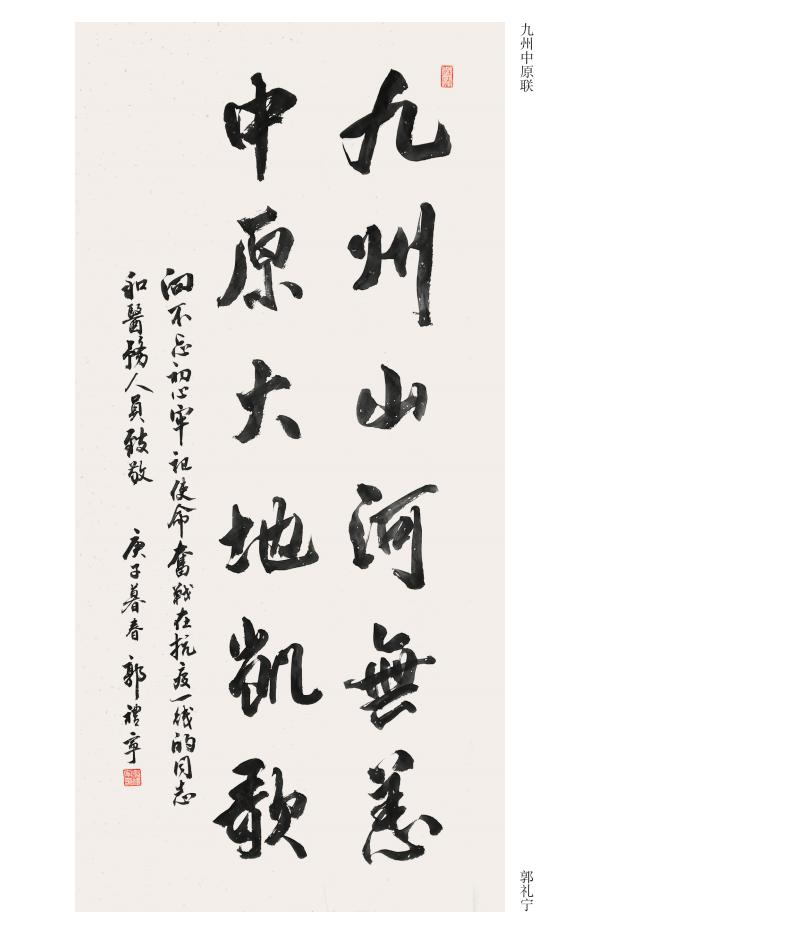 九州中原联
九州山河無恙
中原大地凱歌
向不忘初心牢记使命奮戰在抗疫一线的同志
和醫務人員致敬 庚子暮春 郭禮寧
郭礼宁